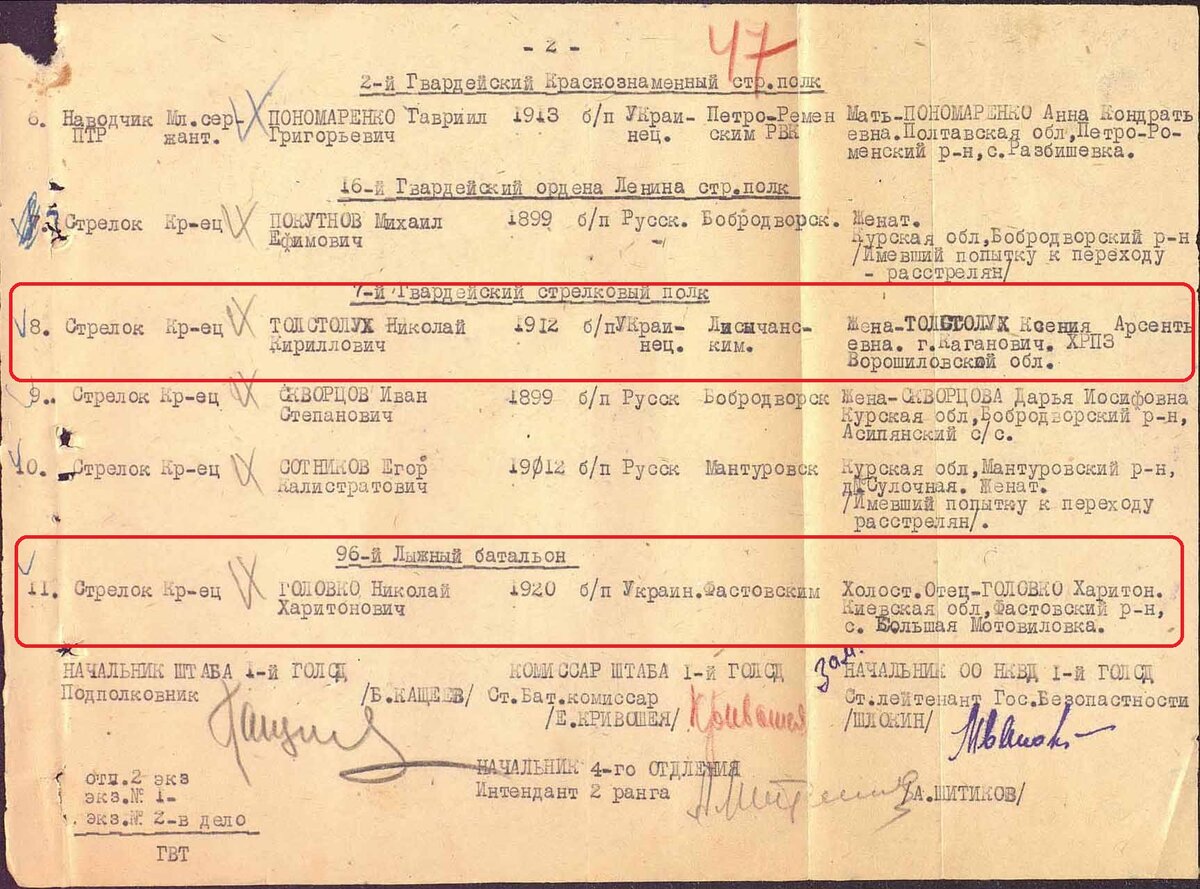 - 2 -
47
2-й Гвардейский Краснознаменный стр.полк
6. Наводчик Мл.сер- ПОНОМАРЕНКО Гавриил 1913 б/п УКраи- Петро-Ремен Мать-ПОНОМАРЕНКО Анна Кондрать
ПТР жант. Григорьевич нец. ским РВК евна.Полтавская обл,Петро-Ро-
менский р-н,с.Разбишевка.
16-й Гвардейский ордена Ленина стр.полк
7. Стрелок Кр-ец ПОКУТНОВ Михаил 1899 б/п Русск. Бобродворск. Женат.
Ефимович Курская обл,Бобродворский р-н
/Имевший попытку к переходу
- расстрелян/
7-й Гвардейский стрелковый полк
8. Стрелок Кр-ец ТОЛСТОЛУХ Николай 1912 б/п УКраи- Лисычанс- Жена-ТОЛСТОЛУХ Ксения Арсенть
Кириллович нец. ким. евна. г.Каганович. ХРПЗ
Ворошиловский обл.
9.. Стрелок Кр-ец СКВОРЦОВ Иван 1899 б/п Русск Бобродворск Жена-СКВОРЦОВА Дарья Иосифовна
Степанович Курская обл,Бобродворский р-н,
Асипянский с/с.
10. Стрелок Кр-ец СОТНИКОВ Егор 1912 б/п Русск Мантуровск Курская обл,Мантуровский р-н,
Калистратович Сулочная. Женат.
/Имевший попытку к переходу
расстрелян/.
96-й Лыжный батальон
11. Стрелок Кр-ец ГОЛОВКО Николай 1920 б/п Украин. Фастовским Холост.Отец-ГОЛОВКО Харитон.
Харитонович Киевская обл,Фастовский р-н,
с. Большая Мотовиловка.
НАЧАЛЬНИК ШТАБА 1-й ГОЛСД КОМИССАР ШТАБА 1-й ГОЛСД зам. НАЧАЛЬНИК ОО НКВД 1-й ГОЛСД
Подполковник /Б.КАЩЕЕВ/ Ст.Бат.комиссар Ст.лейтенант Гос.Безопастности
/Е.КРИВОШЕЯ/ /ШЛОКИН/
НАЧАЛЬНИК 4-го ОТДЕЛЕНИЯ
Интендант 2 ранга /А.ШИТИКОВ/
отп.2 экз
экз.№ 1-
экз.№ 2-в дело
ГВТ